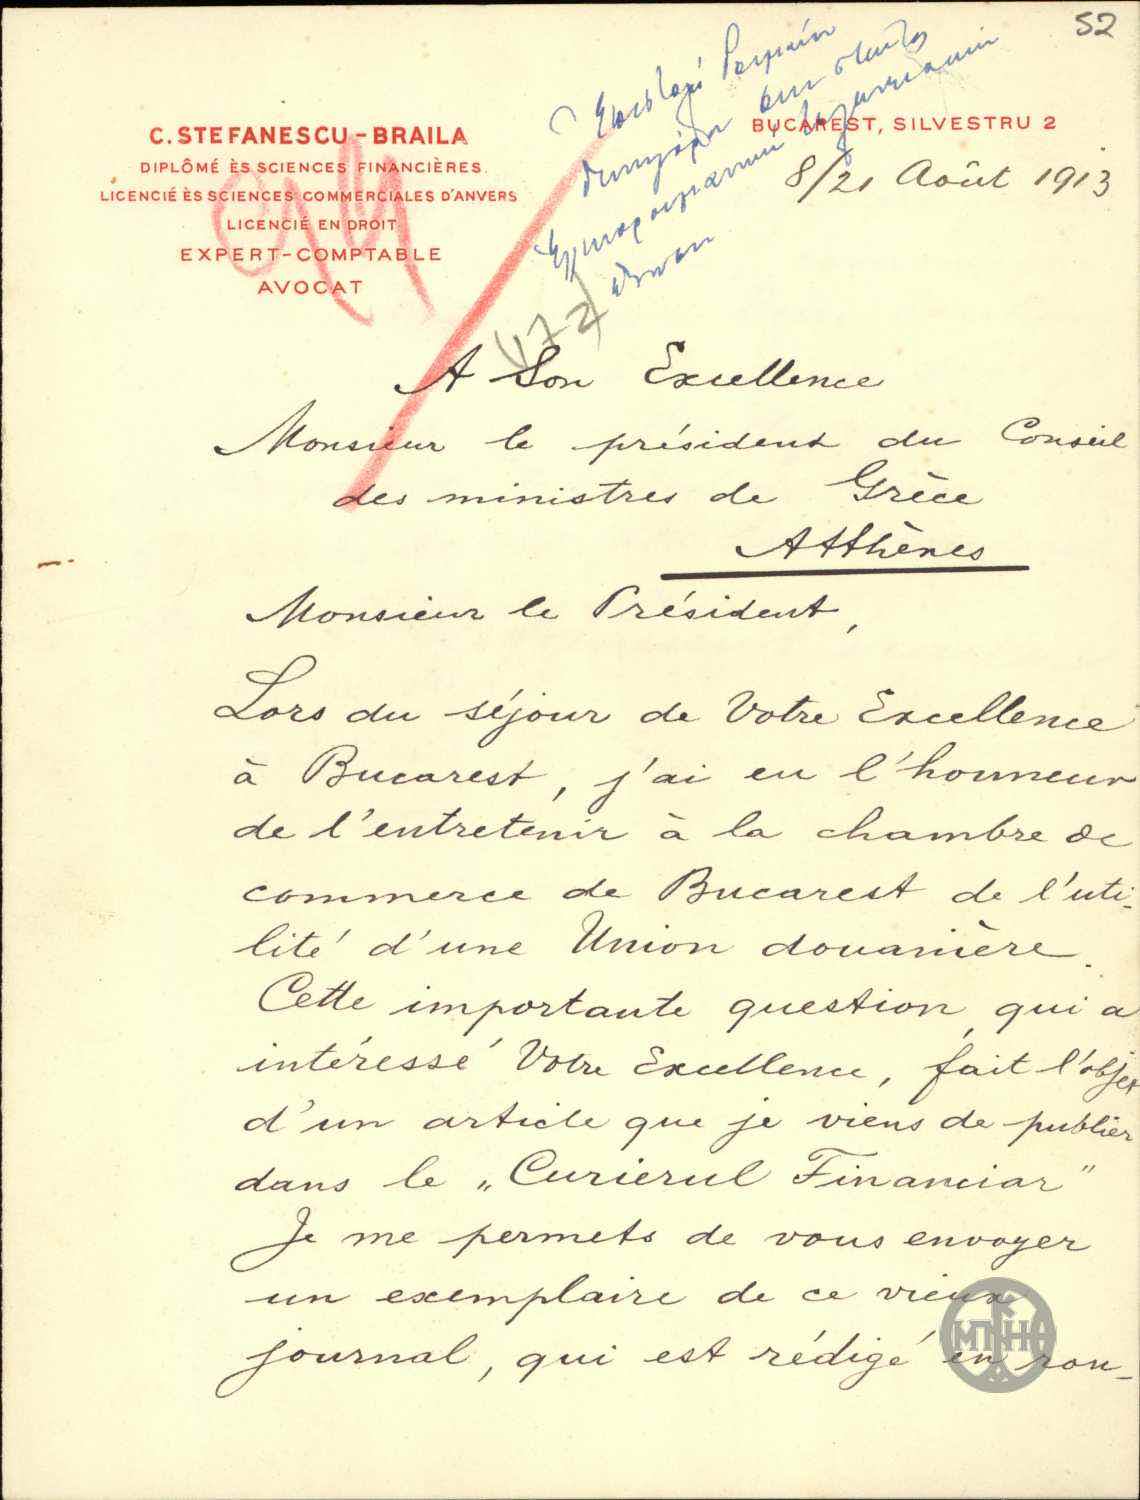 52
C. STEFANESCU-BRAILA
DIPLÔMÉ ÈS SCIENCES FINANCIÈRES
LICENCIÉ ÈS SCIENCES COMMERCIALES D'ANVERS
LICENCIÉ EN DROIT
EXPERT-COMPTABLE
AVOCAT
BUCAREST, SILVESTRU 2
8/21 Août 1913
Ἐπιστολὴ
472
A Son Excellence
Monsieur le président du Conseil
des ministres de Grèce
Atthènes
Monsieur le Président,
Lors du séjour de Votre Excellence
à Bucarest, j'ai eu l'honneur
de l'entretenir à la chambre de
commerce de Bucarest de l'uti-
lité d'une Union douanière.
Cette importante question, qui a
intéressé Votre Excellence, fait l'objet
d'un article que je viens de publier
dans le „Curierul Financiar"
Je me permets de vous envoyer
un exemplaire de ce vieux
journal, qui est rédigé en rou-